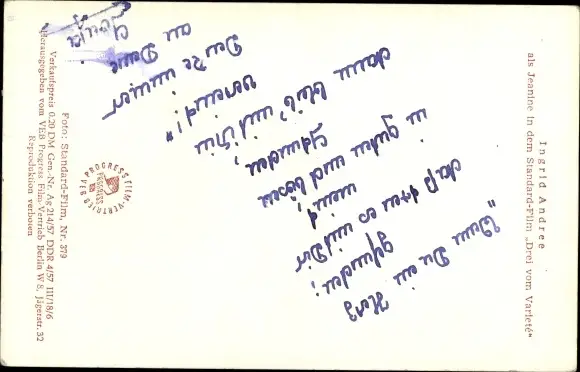 Ingrid Andree
als Jeanine in dem Standard-Film „Drei vom Varieté"
„Wenn Du ein Herz
gefunden;
daß treu es mit Dir
meint,
in guten und bösen
Stunden,
dann bleib' mit ihm
vereint!"
Denke immer
an Deine
PROGRESS FILM-VERTRIEB
VEB
PROGRESS
Foto: Standard-Film, Nr. 379
Verkaufspreis 0.20 DM Gen.-Nr. Ag 214/57 DDR 4/57 III/18/6
Herausgegeben vom VEB Progress Film-Vertrieb Berlin W 8, Jägerstr. 32
Reproduktion verboten